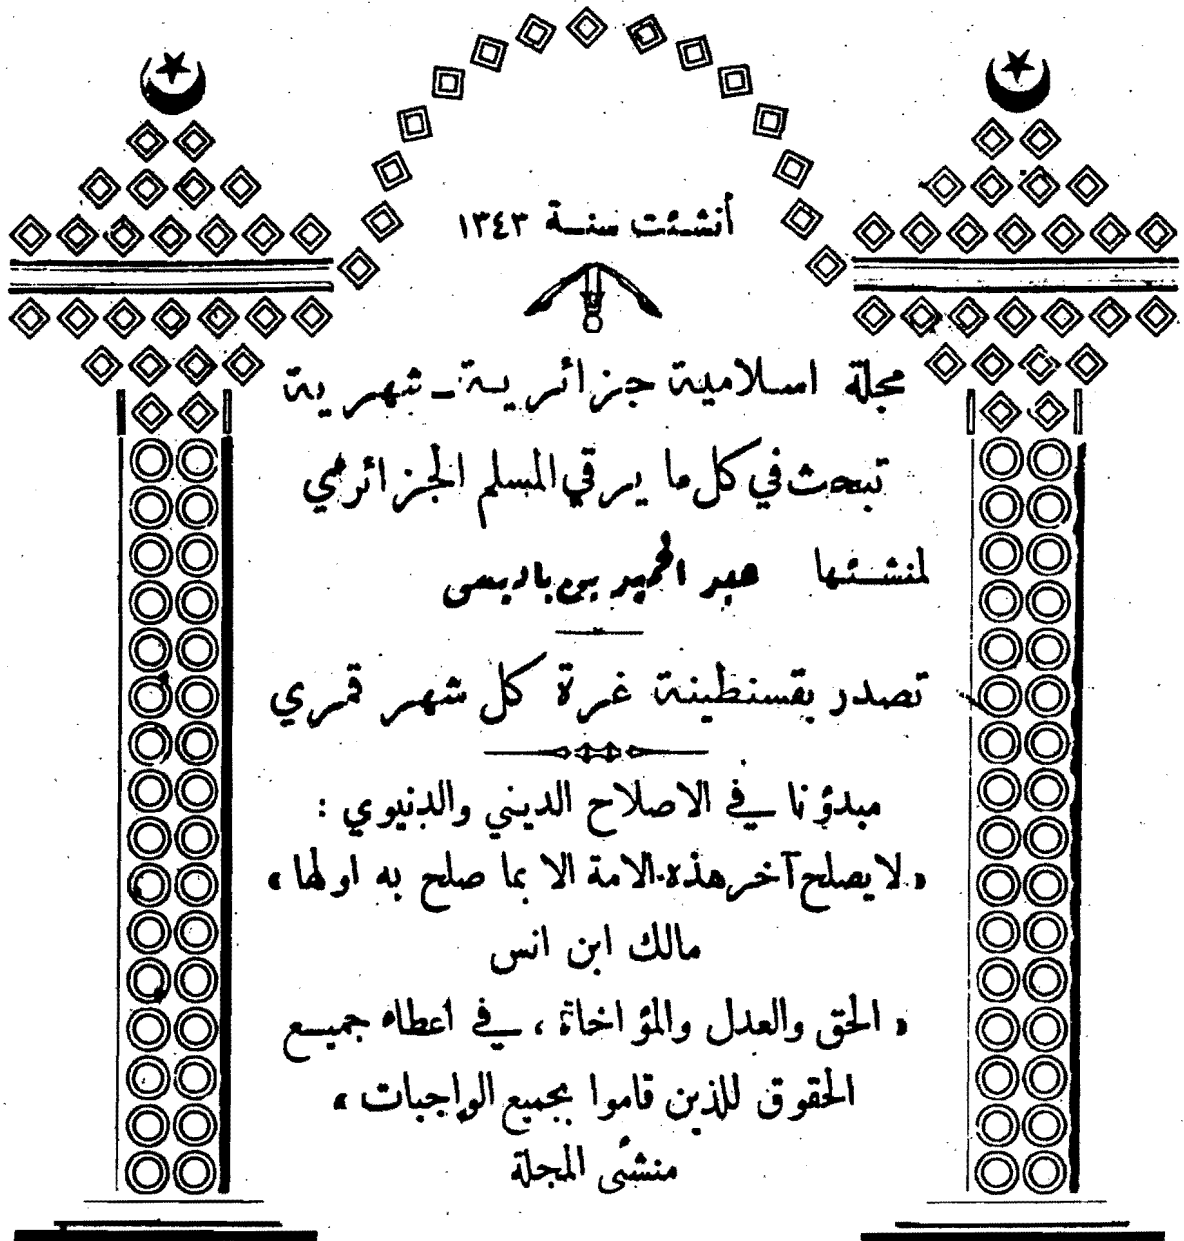 أنشئت سنة ١٣٤٣
مجلة اسلامية جزائرية ـ شهرية
تبحث في كل ما يرقي المسلم الجزائري
لمنشئها عبد الحميد بن باديس
تصدر بقسنطينة غرة كل شهر قمري
مبدؤنا في الاصلاح الديني والدنيوي :
« لا يصلح آخر هذه الامة الا بما صلح به اولها »
مالك ابن انس
« الحق والعدل والمؤاخاة ، في اعطاء جميع
الحقوق للذين قاموا بجميع الواجبات »
منشئ المجلة